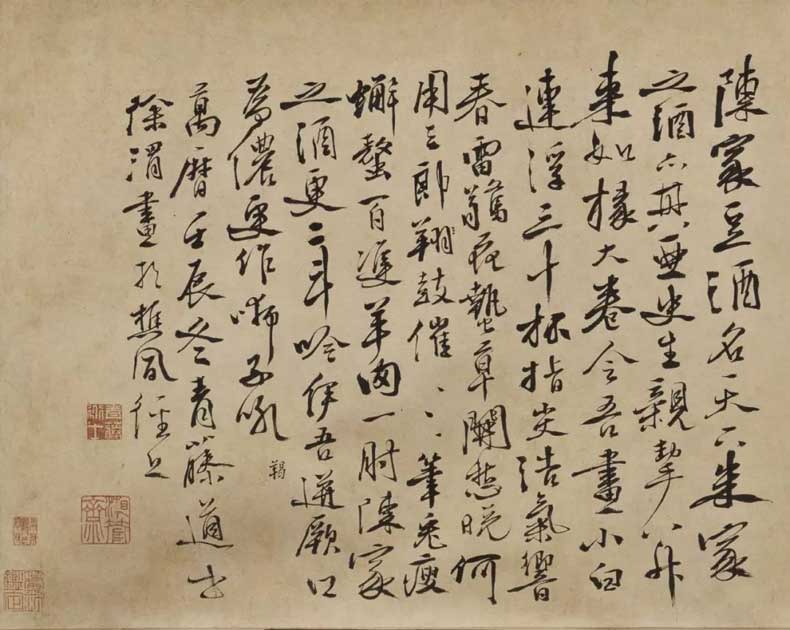 陳家豆酒名天下朱家
之酒亦其亞史生親挈八升
來如椽大卷令吾畫小白
連浮三十杯指尖浩氣響
春雷驚花蟄草開愁晚何
用三郎翔鼓催、、、筆兔瘦
蠏螯百雙羊肉一肘陳家
之酒更二斗吟伊吾迸厥口
為儂更作獅子吼
羯
萬曆壬辰冬青藤道士
徐渭畫於樵風徑上